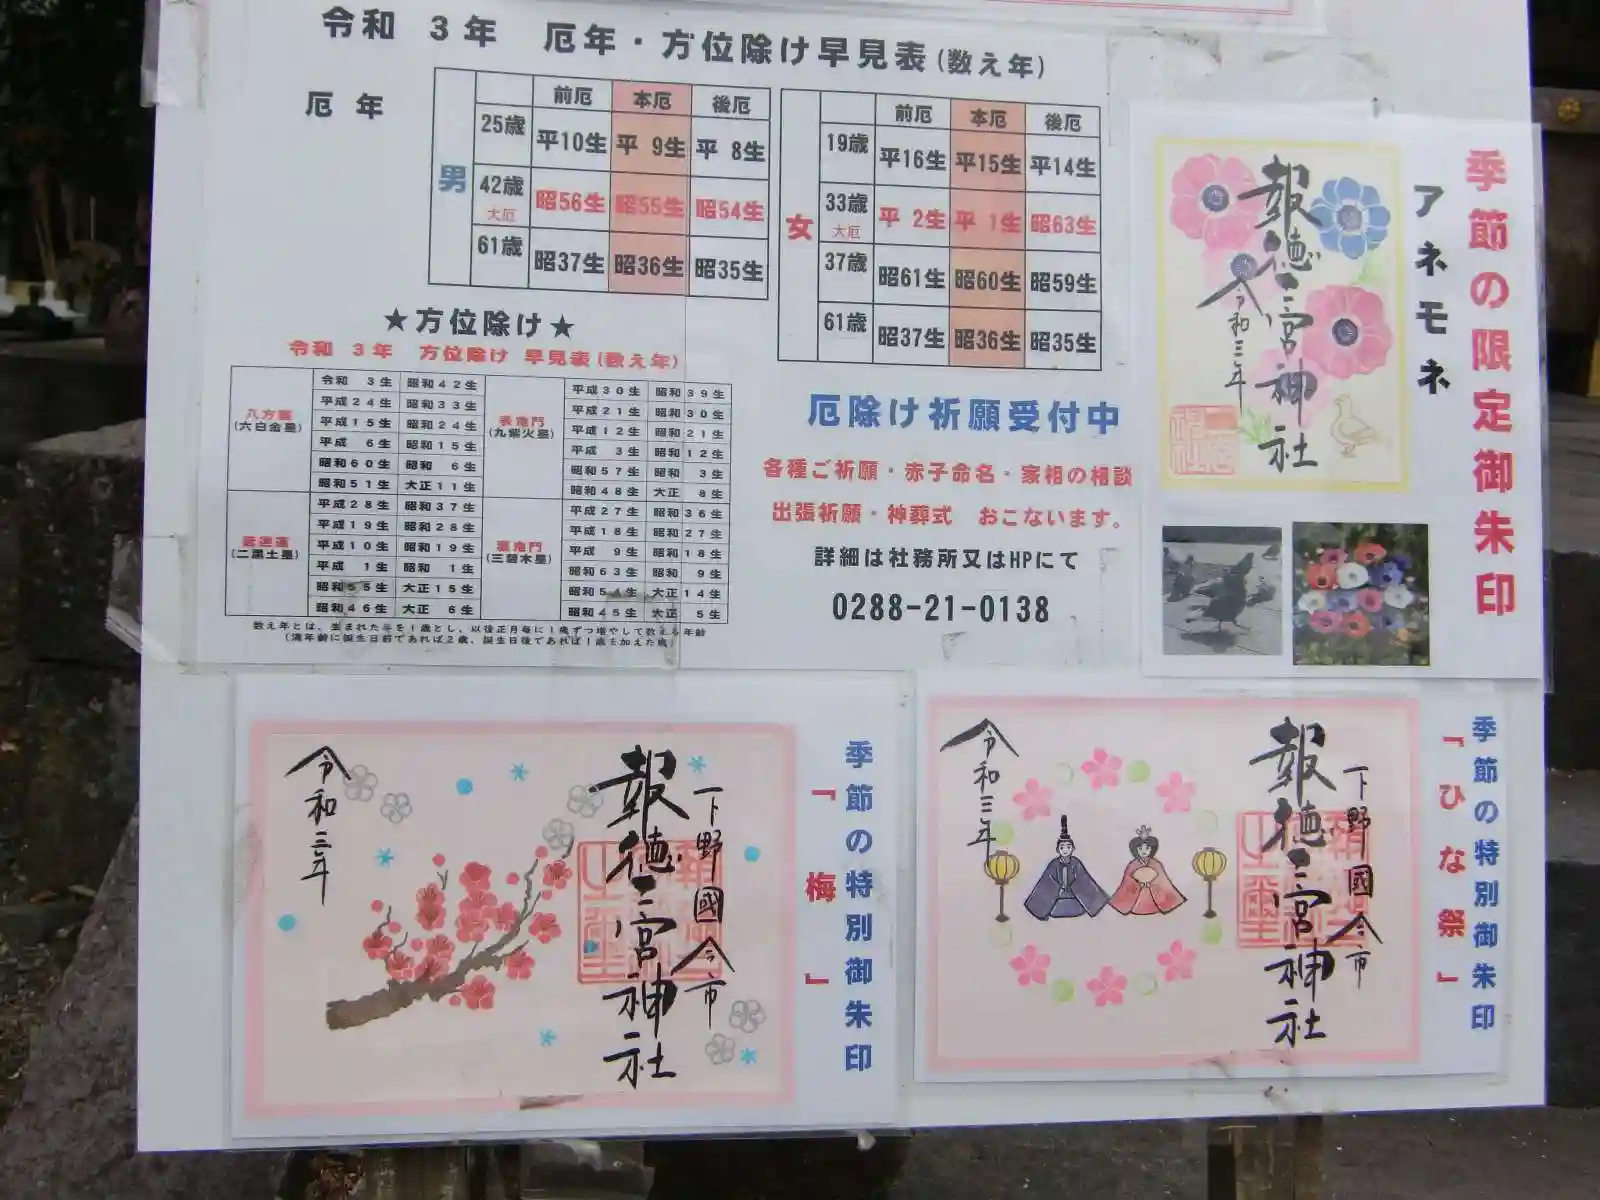 令和 3年 厄年・方位除け早見表(数え年)
厄年
男
前厄 本厄 後厄
25歳 平10生 平 9生 平 8生
42歳 大厄 昭56生 昭55生 昭54生
61歳 昭37生 昭36生 昭35生
女
前厄 本厄 後厄
19歳 平16生 平15生 平14生
33歳 大厄 平 2生 平 1生 昭63生
37歳 昭61生 昭60生 昭59生
61歳 昭37生 昭36生 昭35生
★方位除け★
令和 3年 方位除け 早見表(数え年)
八方塞
(六白金星)
令和 3生 昭和42生
平成24生 昭和33生
平成15生 昭和24生
平成 6生 昭和15生
昭和60生 昭和 6生
昭和51生 大正11生
表鬼門
(九紫火星)
平成30生 昭和39生
平成21生 昭和30生
平成12生 昭和21生
平成 3生 昭和12生
昭和57生 昭和 3生
昭和48生 大正 8生
(二黒土星)
平成28生 昭和37生
平成19生 昭和28生
平成10生 昭和19生
平成 1生 昭和 1生
昭和55生 大正15生
昭和46生 大正 6生
裏鬼門
(三碧木星)
平成27生 昭和36生
平成18生 昭和27生
平成 9生 昭和18生
昭和63生 昭和 9生
昭和54生 大正14生
昭和45生 大正 5生
数え年とは、生まれた年を1歳とし、以後正月毎に1歳ずつ増やして数える年齢
(満年齢に誕生日前であれば2歳、誕生日後であれば1歳を加えた歳)
厄除け祈願受付中
各種ご祈願・赤子命名・家相の相談
出張祈願・神葬式 おこないます。
詳細は社務所又はHPにて
0288-21-0138
季節の限定御朱印
アネモネ
報徳二宮神社
令和三年
季節の特別御朱印
「梅」
下野國今市
報徳二宮神社
令和三年
季節の特別御朱印
「ひな祭」
下野國今市
報徳二宮神社
令和三年